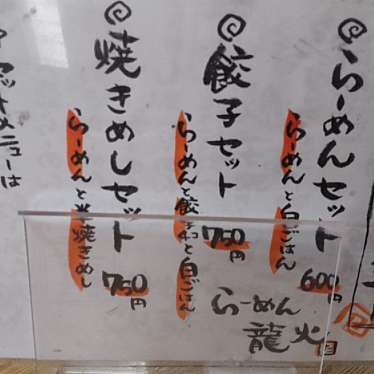 らーめんセット
らーめんと白ごはん
600円
餃子セット
らーめんと餃子と白ごはん
750円
焼きめしセット
らーめんと半焼きめし
750円
セットメニューは
らーめん
龍火